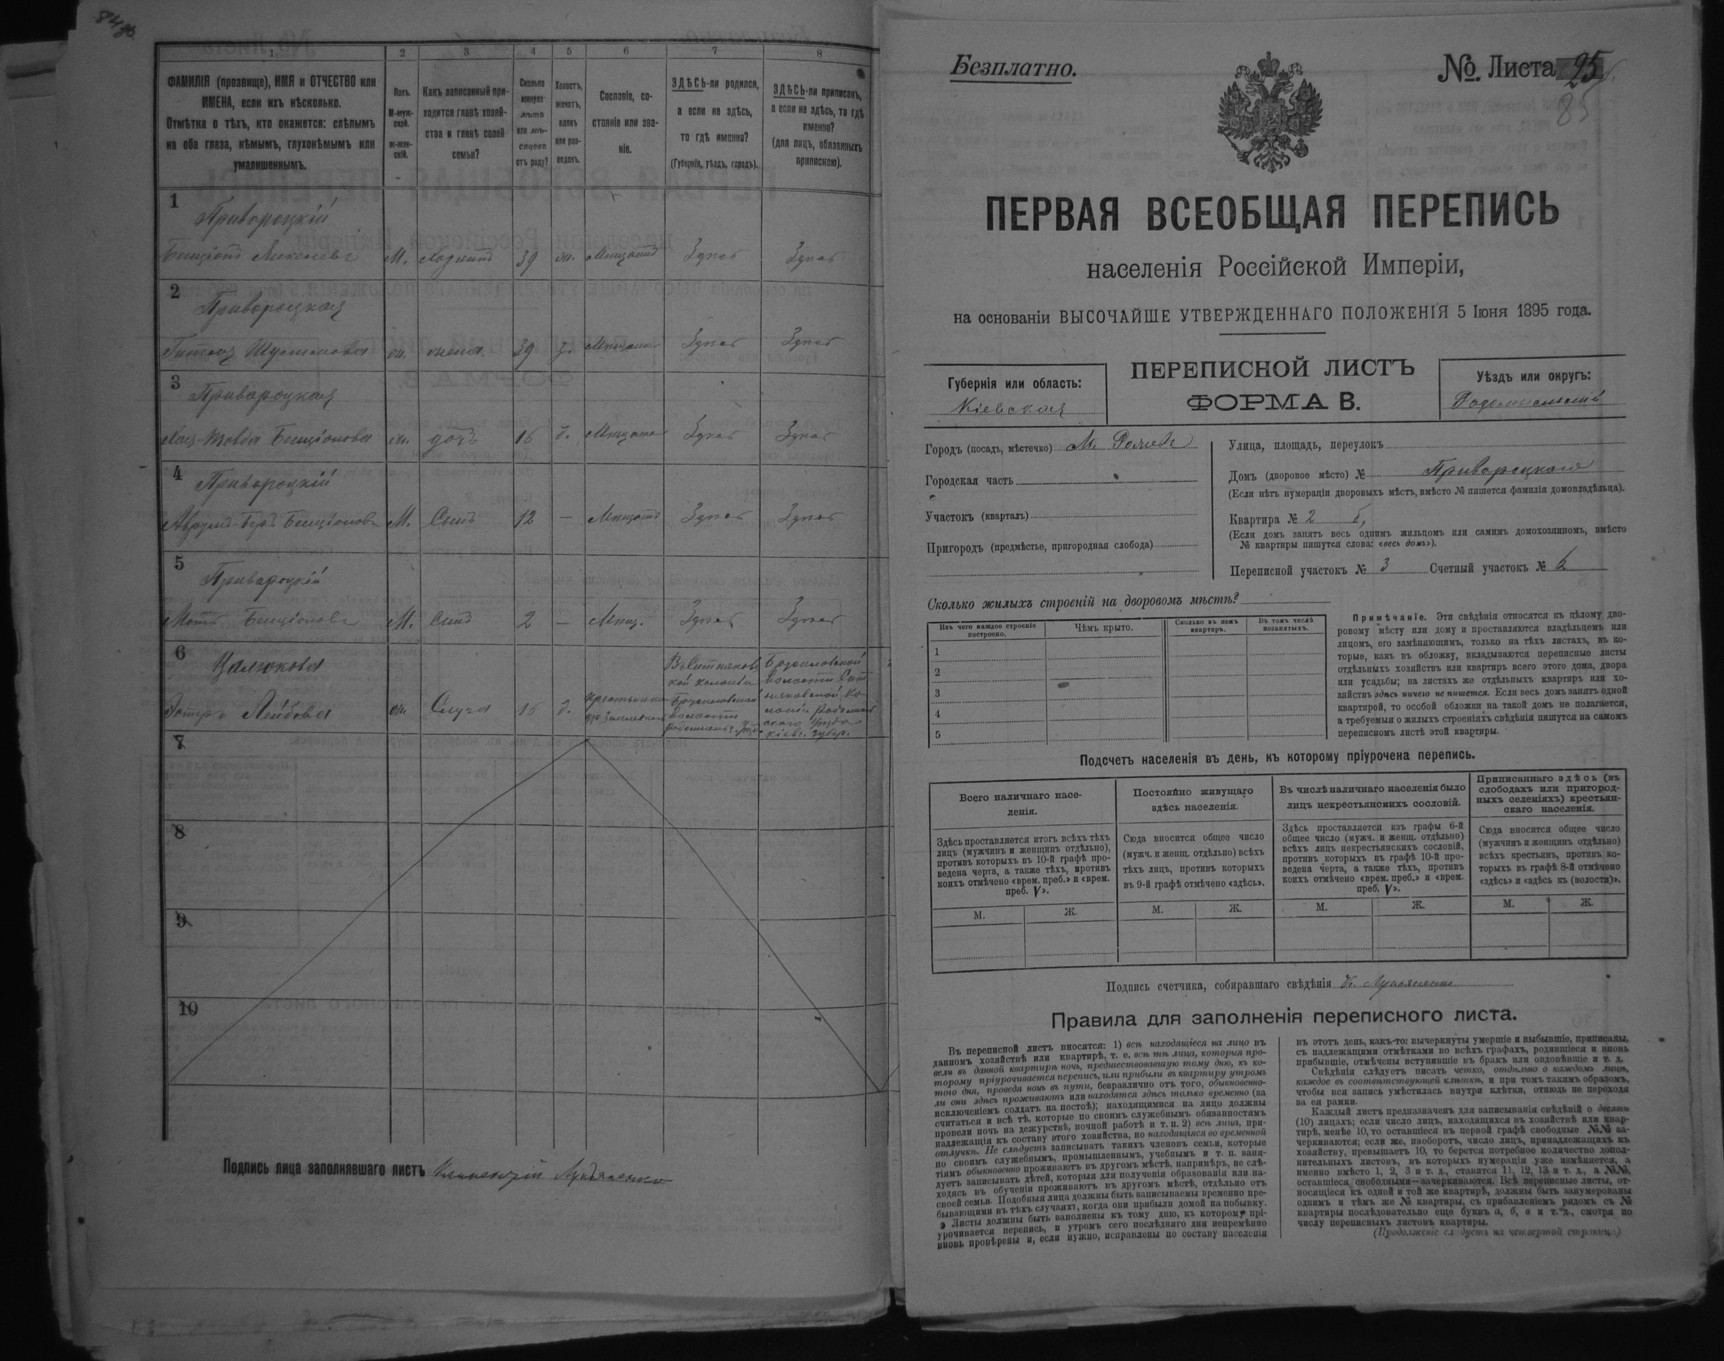 1 2 3 4 5 6 7 8
ФАМИЛІЯ (прозвище), ИМЯ и ОТЧЕСТВО или
ИМЕНА, если ихъ нѣсколько.
Отмѣтка о тѣхъ, кто окажется: слѣпымъ
на оба глаза, нѣмымъ, глухонѣмымъ или
умалишеннымъ.
Полъ.
М-муж-
ской.
ж-жен-
скій.
Какъ записанный при-
ходится главѣ хозяй-
ства и главѣ своей
семьи?
Сколько
минуло
лѣтъ
или мѣ-
сяцевъ
отъ роду?
Холостъ,
женатъ,
вдовъ
или раз-
веденъ.
Сословіе, со-
стояніе или зва-
ніе.
ЗДѢСЬ-ли родился,
а если не здѣсь,
то гдѣ именно?
(Губернія, уѣздъ, городъ).
ЗДѢСЬ-ли приписанъ,
а если не здѣсь, то гдѣ
именно?
(для лицъ, обязанныхъ
припискою).
1
Привороцкій
М. 39 Здѣсь Здѣсь
2
Привороцкая
жена 39 Здѣсь Здѣсь
3
Привороцкая
дочь 16 Здѣсь Здѣсь
4
Привороцкій
М. Сынъ 12 — Здѣсь Здѣсь
5
Привороцкій
М. Сынъ 2 — Мѣщ. Здѣсь Здѣсь
6
Лейбова Слуга 16
7
8
9
10
Подпись лица заполнявшаго листъ
Безплатно.
№. Листа 25
85
ПЕРВАЯ ВСЕОБЩАЯ ПЕРЕПИСЬ
населенія Россійской Имперіи,
на основаніи ВЫСОЧАЙШЕ УТВЕРЖДЕННАГО ПОЛОЖЕНІЯ 5 Іюня 1895 года.
Губернія или область:
Кіевская
ПЕРЕПИСНОЙ ЛИСТЪ
ФОРМА В.
Уѣздъ или округъ:
Радомысльскій
Городъ (посадъ, мѣстечко)
Городская часть
Участокъ (кварталъ)
Пригородъ (предмѣстье, пригородная слобода)
Улица, площадь, переулокъ
Домъ (дворовое мѣсто) № Привороцкаго
(Если нѣтъ нумераціи дворовыхъ мѣстъ, вмѣсто № пишется фамилія домовладѣльца).
Квартира № 2
(Если домъ занятъ весь однимъ жильцомъ или самимъ домохозяиномъ, вмѣсто
№ квартиры пишутся слова: «весь домъ»).
Переписной участокъ № 3 Счетный участокъ № 6
Сколько жилыхъ строеній на дворовомъ мѣстѣ?
Изъ чего каждое строеніе
построено.
Чѣмъ крыто.
Сколько въ немъ
квартиръ.
Въ томъ числѣ
незанятыхъ.
1
2
3
4
5
Примѣчаніе. Эти свѣдѣнія относятся къ цѣлому дво-
ровому мѣсту или дому и проставляются владѣльцемъ или
лицомъ, его замѣняющимъ, только на тѣхъ листахъ, въ ко-
торые, какъ въ обложку, вкладываются переписные листы
отдѣльныхъ хозяйствъ или квартиръ всего этого дома, двора
или усадьбы; на листахъ же отдѣльныхъ квартиръ или хо-
зяйствъ здѣсь ничего не пишется. Если весь домъ занятъ одной
квартирой, то особой обложки на такой домъ не полагается,
а требуемыя о жилыхъ строеніяхъ свѣдѣнія пишутся на самомъ
переписномъ листѣ этой квартиры.
Подсчетъ населенія въ день, къ которому пріурочена перепись.
Всего наличнаго насе-
ленія.
Здѣсь проставляется итогъ всѣхъ тѣхъ
лицъ (мужчинъ и женщинъ отдѣльно),
противъ которыхъ въ 10-й графѣ про-
ведена черта, а также тѣхъ, противъ
коихъ отмѣчено «врем. преб.» и «врем.
преб. V».
Постоянно живущаго
здѣсь населенія.
Сюда вносится общее число
(мужч. и женщ. отдѣльно) всѣхъ
тѣхъ лицъ, противъ которыхъ
въ 9-й графѣ отмѣчено «здѣсь».
Въ числѣ наличнаго населенія было
лицъ некрестьянскихъ сословій.
Здѣсь проставляется изъ графы 6-й
общее число (мужч. и женщ. отдѣльно)
всѣхъ лицъ некрестьянскихъ сословій,
противъ которыхъ въ графѣ 10-й про-
ведена черта, а также тѣхъ, противъ
коихъ отмѣчено «врем. преб.» и «врем.
преб. V».
Приписаннаго здѣсь (въ
слободахъ или пригород-
ныхъ селеніяхъ) крестьян-
скаго населенія.
Сюда вносится общее число
(мужчинъ и женщинъ отдѣльно)
всѣхъ крестьянъ, противъ ко-
торыхъ въ графѣ 8-й отмѣчено
«здѣсь» и «здѣсь къ (волости)».
М. Ж. М. Ж. М. Ж. М. Ж.
Подпись счетчика, собиравшаго свѣдѣнія
Правила для заполненія переписного листа.
Въ переписной листъ вносятся: 1) всѣ находящіеся на лицо въ
данномъ хозяйствѣ или квартирѣ, т. е. всѣ тѣ лица, которыя про-
вели въ данной квартирѣ ночь, предшествовавшую тому дню, къ ко-
торому пріурочивается перепись, или прибыли въ квартиру утромъ
того дня, проведя ночь въ пути, безразлично отъ того, обыкновенно-
ли они здѣсь проживаютъ или находятся здѣсь только временно (за
исключеніемъ солдатъ на постоѣ); находящимися на лицо должны
считаться и всѣ тѣ, которые по своимъ служебнымъ обязанностямъ
провели ночь на дежурствѣ, ночной работѣ и т. п. 2) всѣ лица, при-
надлежащія къ составу этого хозяйства, но находящіяся во временной
отлучкѣ. Не слѣдуетъ записывать такихъ членовъ семьи, которые
по своимъ служебнымъ, промышленнымъ, учебнымъ и т. п. заня-
тіямъ обыкновенно проживаютъ въ другомъ мѣстѣ, напримѣръ, не слѣ-
дуетъ записывать дѣтей, которыя для полученія образованія или на-
ходясь въ обученіи проживаютъ въ другомъ мѣстѣ, отдѣльно отъ
своей семьи. Подобныя лица должны быть записываемы временно пре-
бывающими въ тѣхъ случаяхъ, когда они прибыли домой на побывку.
Листы должны быть заполнены къ тому дню, къ которому прі-
урочивается перепись, и утромъ сего послѣдняго дня непремѣнно
вновь провѣрены и, если нужно, исправлены по составу населенія
въ этотъ день, какъ-то: вычеркнуты умершіе и выбывшіе, приписаны,
съ надлежащими отмѣтками во всѣхъ графахъ, родившіеся и вновь
прибывшіе, отмѣчены вступившіе въ бракъ или овдовѣвшіе и т. д.
Свѣдѣнія слѣдуетъ писать четко, отдѣльно о каждомъ лицѣ,
каждое въ соотвѣтствующей клѣткѣ, и при томъ такимъ образомъ,
чтобы вся запись умѣстилась внутри клѣтки, отнюдь не переходя
за ея рамки.
Каждый листъ предназначенъ для записыванія свѣдѣній о десяти
(10) лицахъ; если число лицъ, находящихся въ хозяйствѣ или квар-
тирѣ, менѣе 10, то оставшіеся въ первой графѣ свободные №№ за-
черкиваются; если же, наоборотъ, число лицъ, принадлежащихъ къ
хозяйству, превышаетъ 10, то берется потребное количество допол-
нительныхъ листовъ, въ которыхъ нумерація уже измѣняется, а
именно вмѣсто 1, 2, 3 и т. д., ставится 11, 12, 13 и т. д., а №№,
оставшіеся свободными—зачеркиваются. Всѣ переписные листы, от-
носящіеся къ одной и той же квартирѣ, должны быть занумерованы
однимъ и тѣмъ же № квартиры, съ прибавленіемъ рядомъ съ №
квартиры послѣдовательно еще буквъ а, б, в и т. д., смотря по
числу переписныхъ листовъ квартиры.
(Продолженіе слѣдуетъ на четвертой страницѣ.)